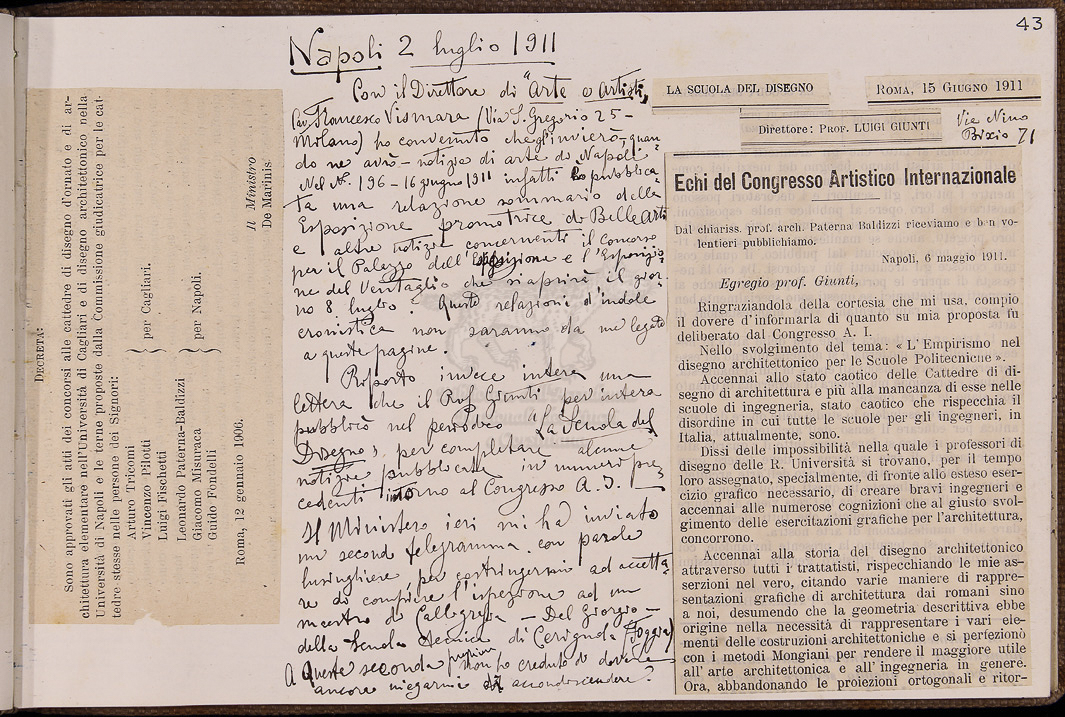 43
DECRETA:
Sono approvati gli atti dei concorsi alle cattedre di disegno d'ornato e di ar-
chitettura elementare nell'Università di Cagliari e di disegno architettonico nella
Università di Napoli e le terne proposte dalla Commissione giudicatrice per le cat-
tedre stesse nelle persone dei Signori:
Arturo Triccomi
Vincenzo Pilotti
Luigi Fischetti
} per Cagliari.
Leonardo Paterna-Baldizzi
Giacomo Misuraca
Guido Fondelli
} per Napoli.
Roma, 12 gennaio 1906.
Il Ministro
De Marinis
Napoli 2 luglio 1911
Con il Direttore di "Arte e Artisti,
Cav. Francesco Vismara (Via S. Gregorio 25 -
Milano) ho convenuto che gl'invierò, quan
do ne avrò - notizie di arte da Napoli
Nel N. 196 - 16 giugno 1911 infatti ho pubblica
ta una relazione sommario della
Esposizione promotrice di Belle Arti
e altre notizie concernenti il Concorso
per il Palazzo dell'Esposizione e l'Esposizio
ne del Ventaglio che si aprirà il gior
no 8 luglio. Queste relazioni d'indole
cronistica non saranno da me legate
a queste pagine.
Riporto invece intera una
lettera che il Prof Giunti per intera
pubblicò nel periodico "La Scuola del
Disegno", per completare alcune
notizie pubblicate in numeri pre
cedenti intorno al Congresso A. I.
Il Ministero ieri mi ha inviato
un second telegramma con parole
lusinghiere, per costringermi ad accetta
re di compiere l'ispezione ad un
maestro di Calligrafia - Del Giorgio -
della Scuola tecnica di Cerignola (Foggia)
A queste seconda non ho creduto di dovere
ancora niegarmi accondiscendere?
LA SCUOLA DEL DISEGNO
ROMA, 15 GIUGNO 1911
Direttore: PROF. LUIGI GIUNTI
Via Nino
Bixio 71
Echi del Congresso Artistico Internazionale
Dal chiariss. prof. arch. Paterna Baldizzi riceviamo e ben vo-
lentieri pubblichiamo.
Napoli, 6 maggio 1911.
Egregio prof. Giunti,
Ringraziandola della cortesia che mi usa, compio
il dovere d'informarla di quanto su mia proposta fu
deliberato dal Congresso A. I.
Nello svolgimento del tema: « L'Empirismo nel
disegno architettonico per le Scuole Politecniche ».
Accennai allo stato caotico delle Cattedre di di-
segno di architettura e più alla mancanza di esse nelle
scuole di ingegneria, stato caotico che rispecchia il
disordine in cui tutte le scuole per gli ingegneri, in
Italia, attualmente, sono.
Dissi delle impossibilità nella quale i professori di
disegno delle R. Università si trovano, per il tempo
loro assegnato, specialmente, di fronte allo esteso eser-
cizio grafico necessario, di creare bravi ingegneri e
accennai alle numerose cognizioni che al giusto svol-
gimento delle esercitazioni grafiche per l'architettura,
concorrono.
Accennai alla storia del disegno architettonico
attraverso tutti i trattatisti, rispecchiando le mie as-
serzioni nel vero, citando varie maniere di rappre-
sentazioni grafiche di architettura dai romani sino
a noi, desumendo che la geometria descrittiva ebbe
origine nella necessità di rappresentare i vari ele-
menti delle costruzioni architettoniche e si perfezionò
con i metodi Mongiani per rendere il maggiore utile
all'arte architettonica e all'ingegneria in genere.
Ora, abbandonando le proiezioni ortogonali e ritor-